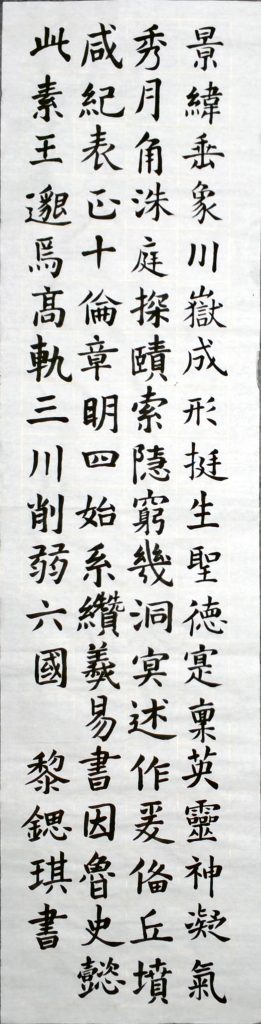 景緯垂象川嶽成形挺生聖德寔稟英靈神凝氣
秀月角洙庭探賾索隱窮幾洞冥述作爰俻丘墳
咸紀表正十倫章明四始系纘羲易書因魯史懿
此素王邈焉高軌三川削弱六國 黎鍶琪書